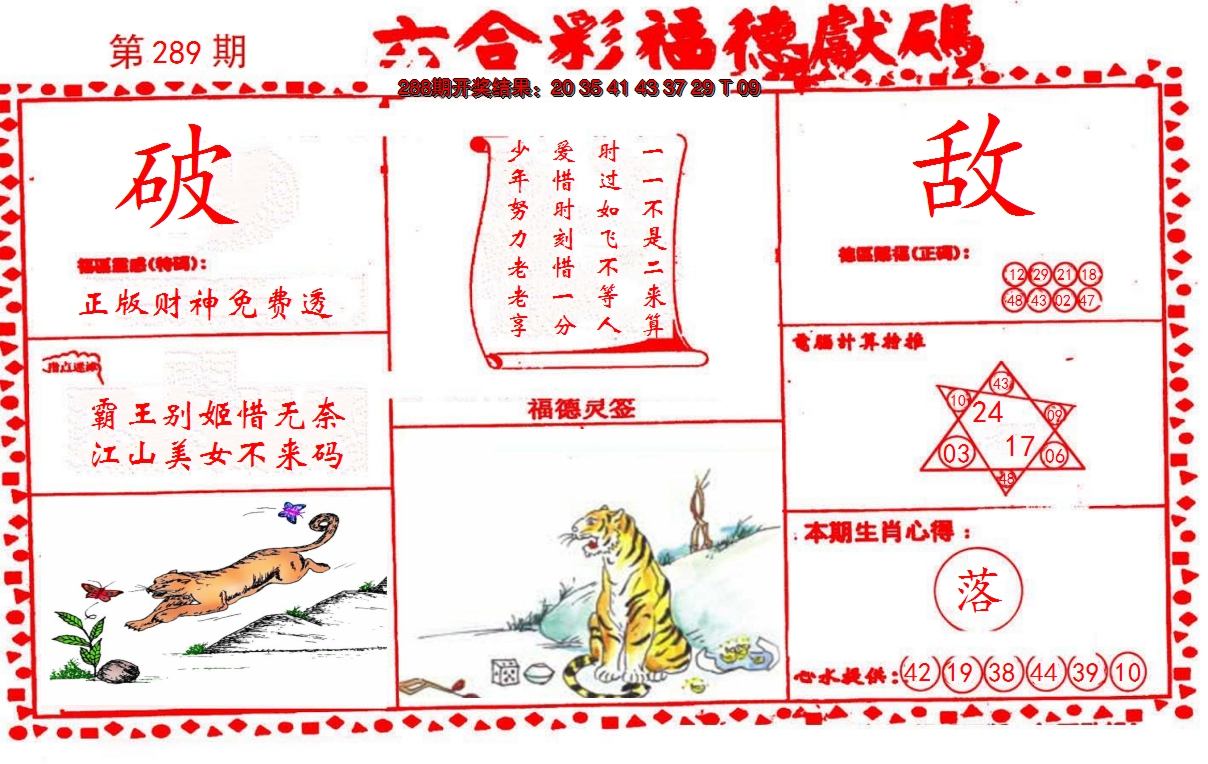 第 289 期
六合彩福德獻碼
288期开奖结果：20 35 41 43 37 29 T 09
破
福區靈感(特碼)：
正版财神免费透
指点迷津
霸王别姬惜无奈
江山美女不来码
一一不是二来算
时过如飞不等人
爱惜时刻惜一分
少年努力老老享
福德灵签
敌
德區賜福(正碼)：
12 29 21 18
48 43 02 47
電腦計算推
43
10 24 09
03 17 06
48
本期生肖心得：
落
心水提供：42 19 38 44 39 10